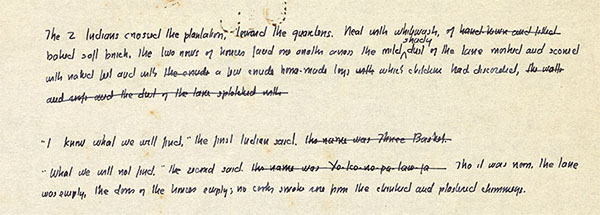 The 2 Indians crossed the plantation, toward the quarters. Neat with whitewash, of hand hewn and
baked soft brick, the two rows of houses faced one another across the mild shady dust of the lane marked and scored
with naked feet and with the crude a few crude home-made toys with which children had discarded, the walls
and roofs and the dust of the lane splotched with
"I know what we will find," the first Indian said. His name was Three Basket.
"What we will not find," the second said. His name was Yo-ko-no-pa-taw-fa Tho it was noon, the lane
was empty, the doors of the houses empty; no smoke rose from the chinked and plastered chimneys.